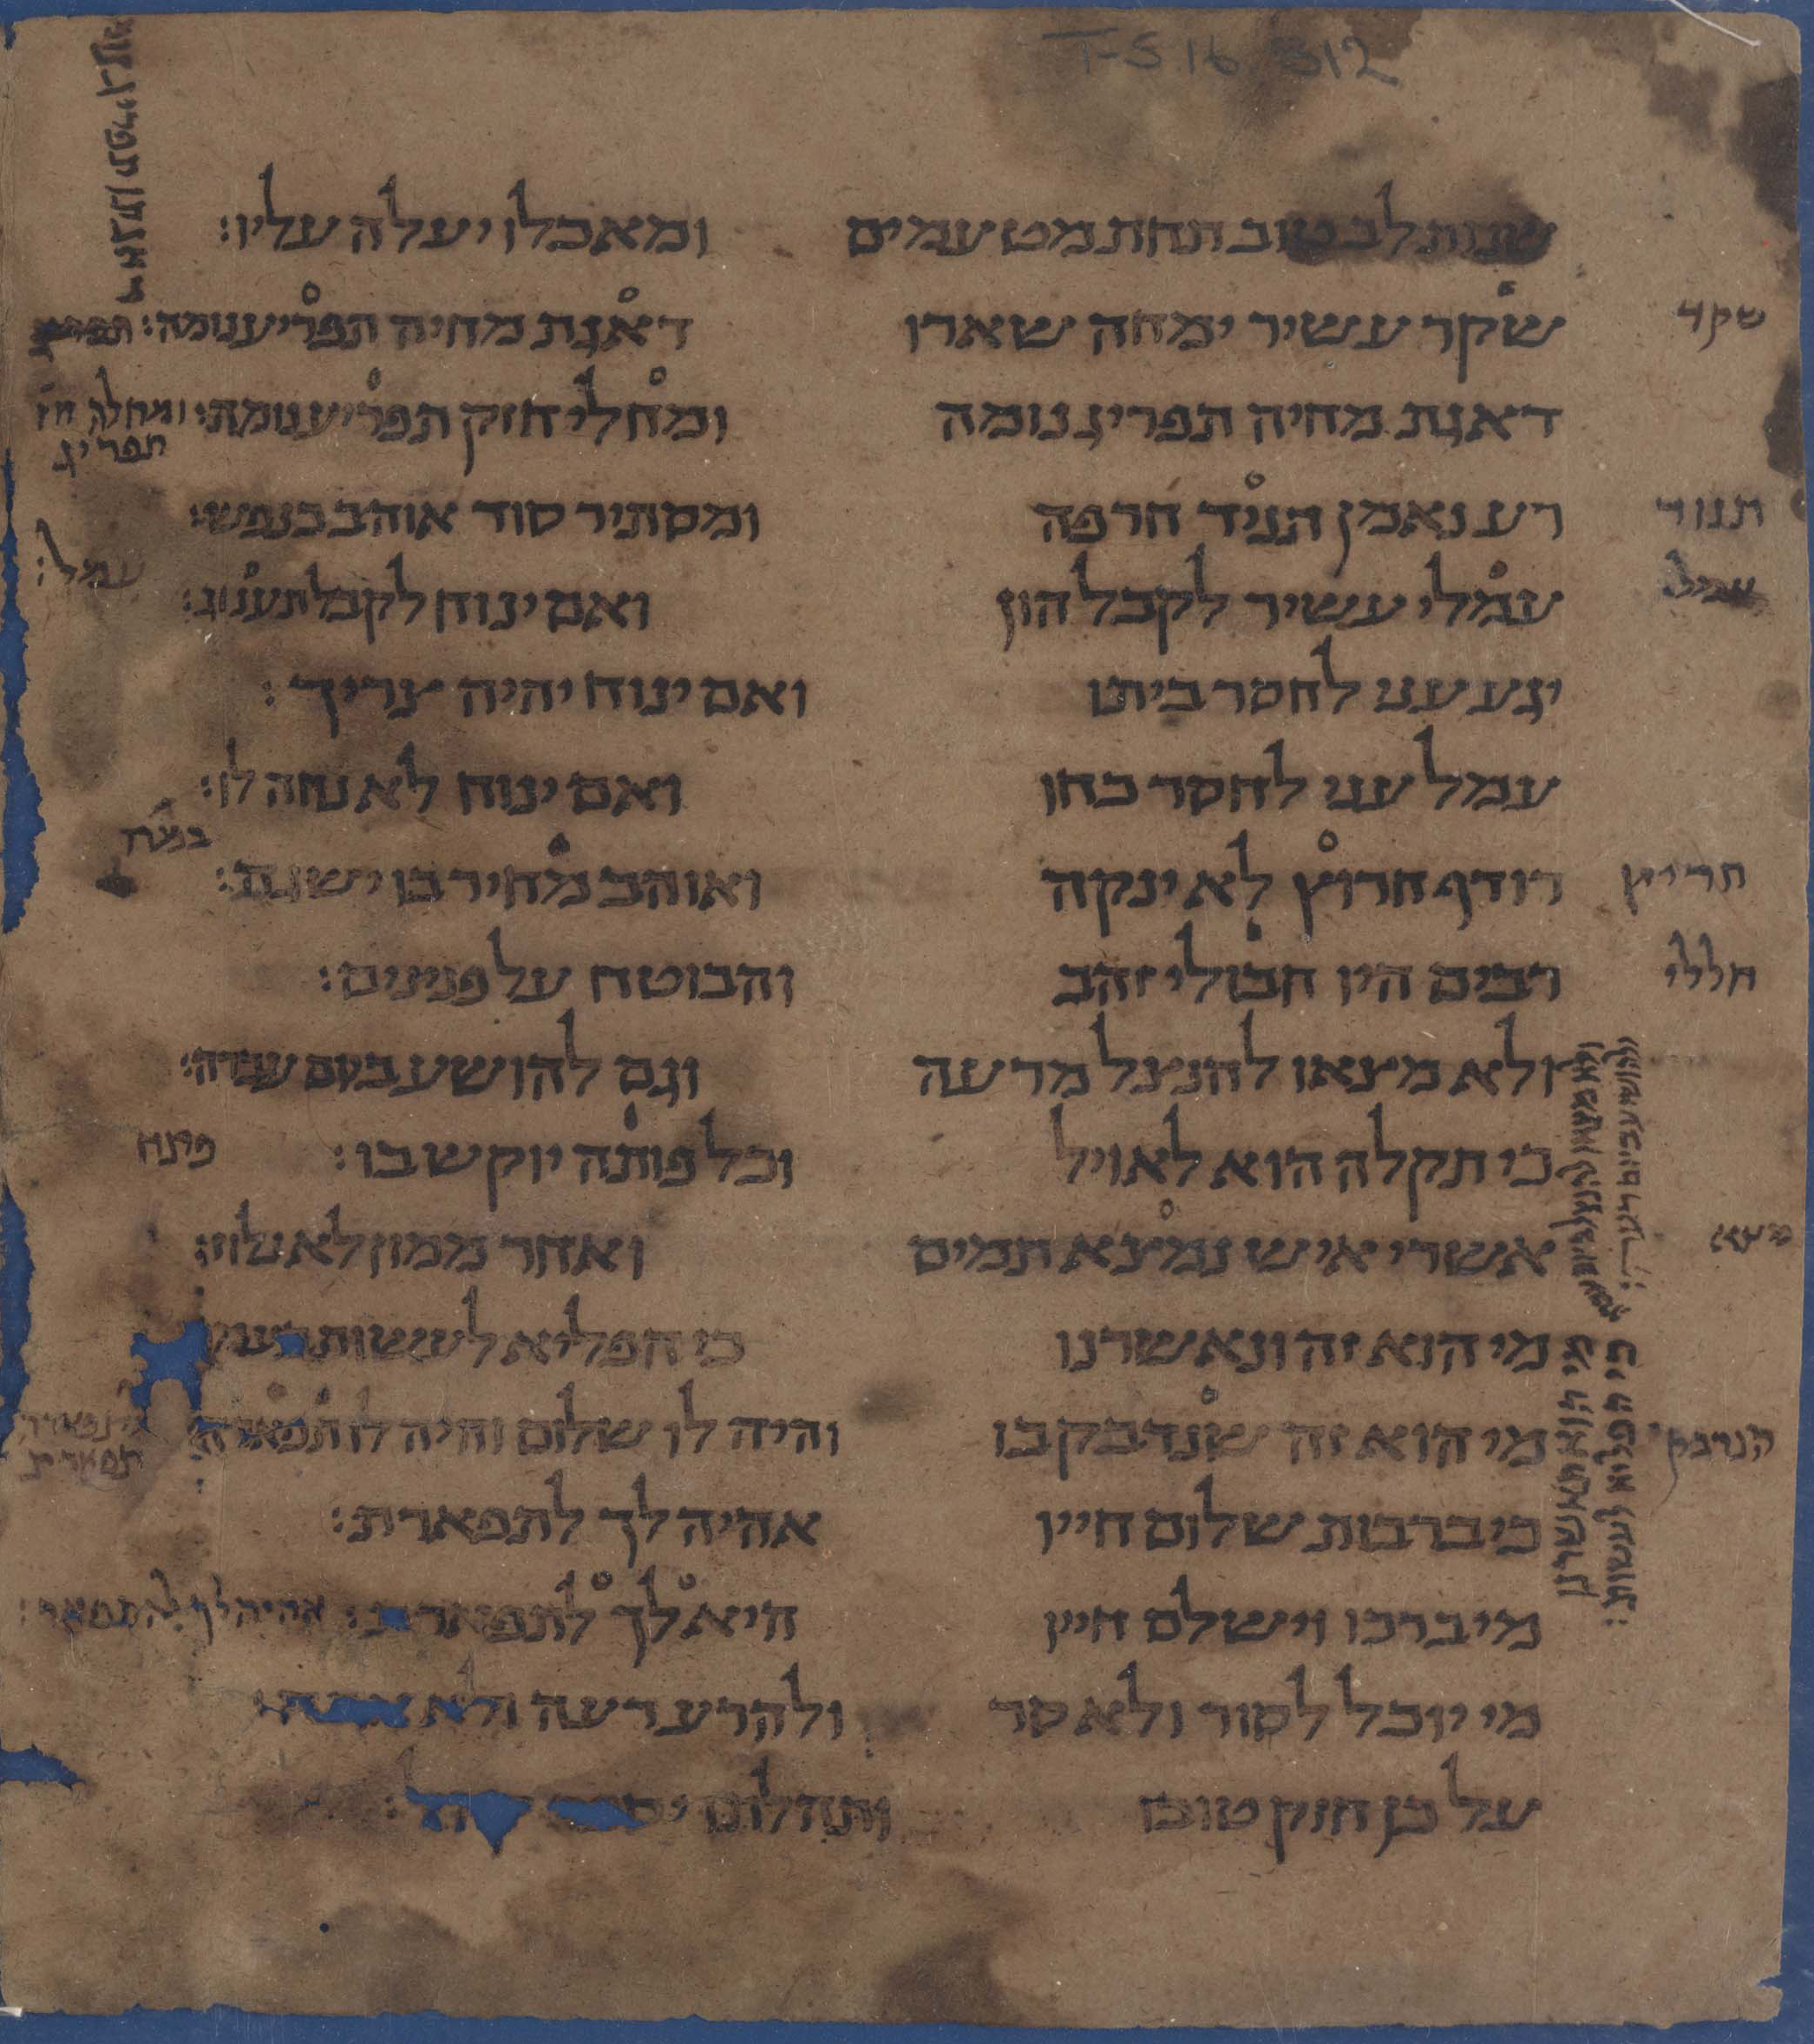 T-S 16 312
שנות לב טוב תחת מטעמים ומאכלו יעלה עליו:
שקר עשיר ימחה שארו דאגת מחיה תפריע נומה:
שקד
דאגת מחיה תפריג נומה ומחלי חזק תפריע נומה:
ומחלה חז
תפריג
רע נאמן תניד חרפה ומסתיר סוד אוהב כנפש:
תנוד
עמלי עשיר לקבל הון ואם ינוח לקבל תענוג:
עמל
עמל:
יגע עני לחסר ביתו ואם ינוח יהיה צריך:
עמל עני לחסר כחו ואם ינוח לא נחה לו:
רודף חרוץ לא ינקה ואוהב מחיר בו ישגה:
חריץ
רבים היו חבולי זהב והבוטח על פנינים:
חללי
ולא מצאו להנצל מרעה וגם להושע ביום עברה:
כי תקלה הוא לאויל וכל פותה יוקש בו:
פתח
אשרי איש נמצא תמים ואחר ממון לא נלוז:
מי הוא זה ונאשרנו כי הפליא לעשות
מי הוא זה שנדבק בו והיה לו שלום והיה לו תפארה
תפארת
כי ברבות שלום חייו אהיה לך לתפארת:
מי ברכו וישלם חייו היא לך לתפארת:
מי יוכל לסור ולא סר ולהרע רעה ולא
על כן חזק טובו ותהלתו
מי הוא זה ונאשרנו
כי הפליא לעשות: